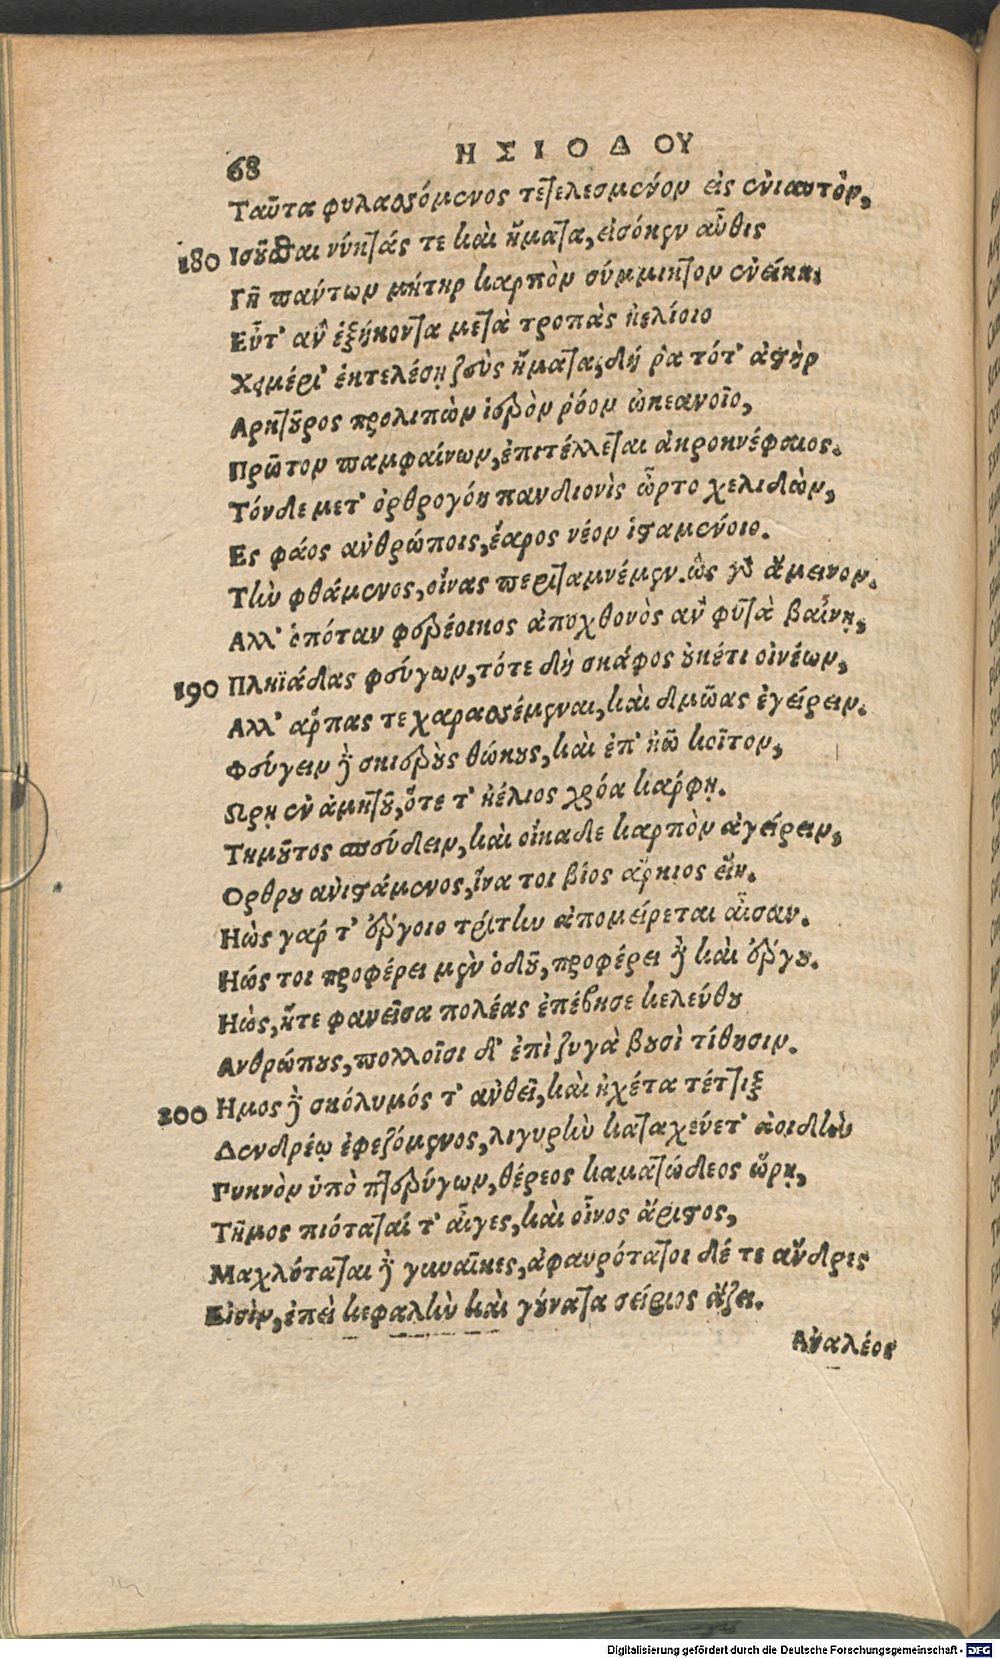 68 ΗΣΙΟΔΟΥ
Ταῦτα φυλαασόμενος τετελεσμένον εἰς ἐνιαυτὸν,
180 Ισοῦσθαι νύκτάς τε καὶ ἤματα, εἰσόκεν αὖθις
Γῆ πάντων μήτηρ καρπὸν σύμμικτον ἐνείκῃ.
Εὖτ' ἂν ἑξήκοντα μετὰ τροπὰς ἠελίοιο
Χειμέρι' ἐκτελέσῃ ζεὺς ἤματα, δή ῥα τότ' ἀστὴρ
Αρκτοῦρος προλιπὼν ἱερὸν ῥόον ὠκεανοῖο,
Πρῶτον παμφαίνων, ἐπιτέλλεται ἀκροκνέφαιος.
Τόνδε μετ' ὀρθρογόη πανδιονὶς ὦρτο χελιδὼν,
Ες φάος ἀνθρώποις, ἔαρος νέον ἱσταμένοιο.
Τὴν φθάμενος, οἴνας περιταμνέμεν. ὣς γὰρ ἄμεινον.
Αλλ' ὁπόταν φερέοικος ἀπὸ χθονὸς ἂν φυτὰ βαίνῃ,
190 Πληϊάδας φεύγων, τότε δὴ σκάφος οὐκέτι οἰνέων,
Αλλ' ἅρπας τε χαρασσέμεναι, καὶ δμῶας ἐγείρειν.
Φεύγειν δὲ σκιεροὺς θώκους, καὶ ἐπ' ἠῶ κοῖτον,
Ωρῃ ἐν ἀμητοῦ, ὅτε τ' ἠέλιος χρόα κάρφῃ.
Τημοῦτος σπεύδειν, καὶ οἴκαδε καρπὸν ἀγείρειν,
Ορθρου ἀνιστάμενος, ἵνα τοι βίος ἄρκιος εἴη.
Ηὼς γάρ τ' ἔργοιο τρίτην ἀπομείρεται αἶσαν.
Ηώς τοι προφέρει μὲν ὁδοῦ, προφέρει δὲ καὶ ἔργου.
Ηὼς, ἥτε φανεῖσα πολέας ἐπέβησε κελεύθου
Ανθρώπους, πολλοῖσι δ' ἐπὶ ζυγὰ βουσὶ τίθησιν.
200 Ημος δὲ σκόλυμός τ' ἀνθεῖ, καὶ ἠχέτα τέττιξ
Δενδρέῳ ἐφεζόμενος, λιγυρὴν καταχεύετ' ἀοιδὴν
Πυκνὸν ὑπὸ πτερύγων, θέρεος καματώδεος ὥρῃ,
Τῆμος πιόταταί τ' αἶγες, καὶ οἶνος ἄριστος,
Μαχλόταται δὲ γυναῖκες, ἀφαυρότατοι δέ τε ἄνδρες
Εἰσὶν, ἐπεὶ κεφαλὴν καὶ γούνατα σείριος ἄζει.
Αὐαλέος
Digitalisierung gefördert durch die Deutsche Forschungsgemeinschaft - DFG